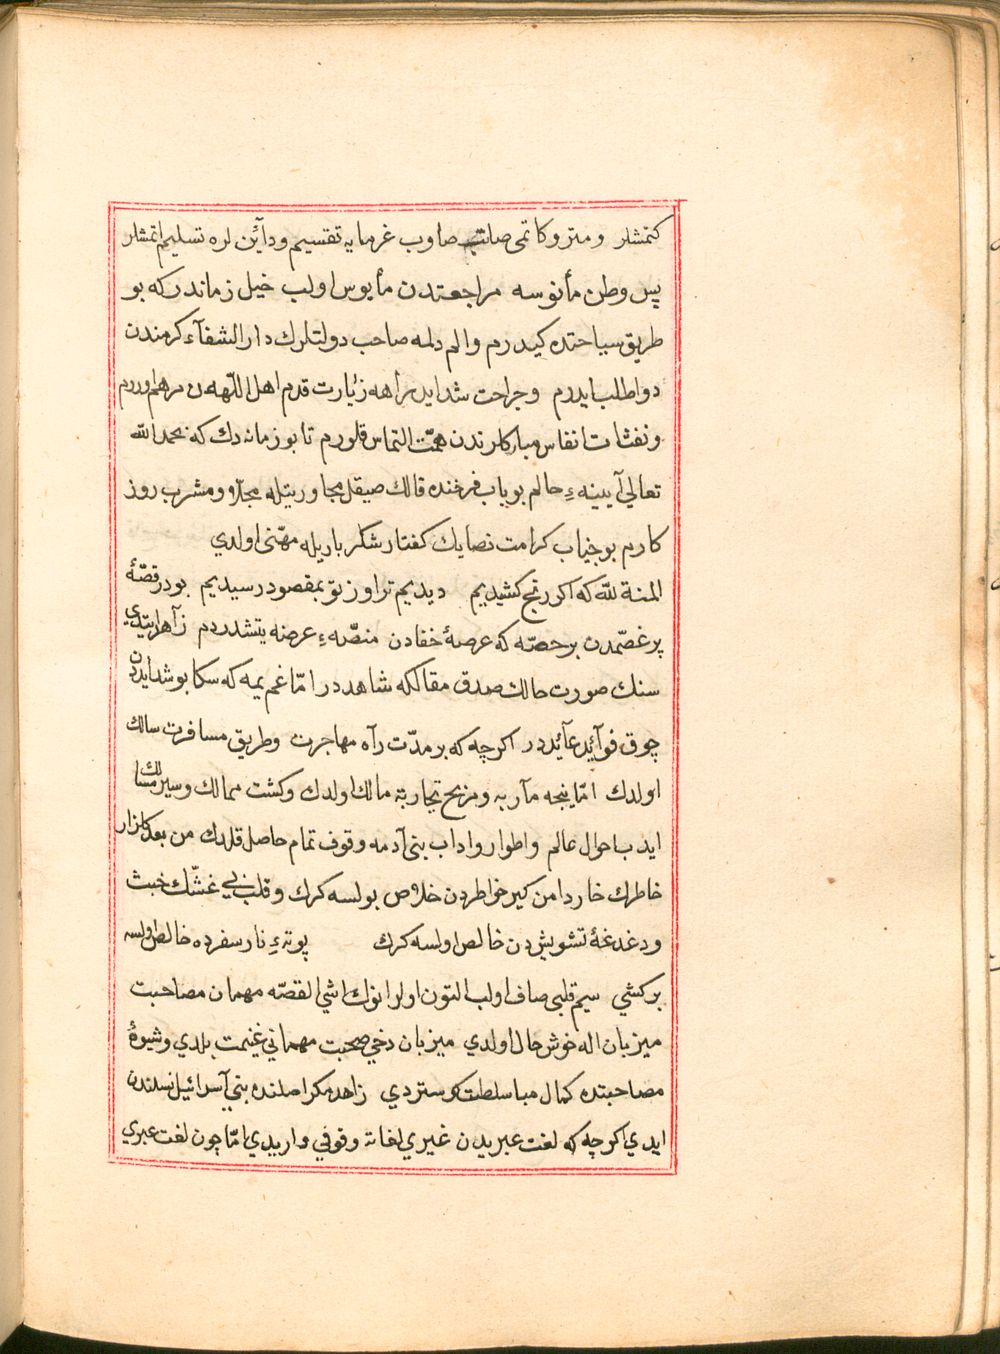 كتمشلر و متروكاتمى صاتب صاوب غرمايه تقسيم ودآئن لره تسليم اتمشلر
پس وطن مأنوسه مراجعتدن مأيوس اولب خيل زماندر كه بو
طريق سياحتده كيدرم والم دلمه صاحب دولتلرك دار الشفآء كرمندن
دوا طلب ايدرم وجراحت شدايد راهه زيارت قدم اهل اللهدن مرهم اورورم
ونفثات انفاس مباركلرندن همّت التماس قلورم تا بو زمانه دك كه بحمد الله
تعالى آيينهءِ حالم بو باب فرخنده فالك صيقل مجاورتيله مجلا ومشرب روز
كارم بو جناب كرامت نصابك كفتار شكر باريله مهنّى اولدي
المنة لله كه اكر رنج كشيديم ديديم ترا وز تو بمقصود رسيديم بودر قصّهٔ
پر غصّمدن بر حصّه كه عرصهٔ خفادن منصّهءِ عرضه يتشدردم زآهد ايتدي
سنك صورت حالك صدق مقالكه شاهددر امّا غم يمه كه سكا بو شدايددن
چوق فوآئد عآئددر اكرچه كه بر مدّت رآه مهاجرت وطريق مسافرت سالك
اولدك امّا نيجه مآربه ومزبح تجاربه مالك اولدك وكشت ممالك وسير مسالك
ايدب احوال عالم واطوار واداب بنى آدمه وقوف تمام حاصل قلدك من بعد كلزار
خاطرك خار دامن كير خواطردن خلاص بولسه كرك وقلب بي غشّك خبث
ودغدغهٔ تشويش دن خالص اولسه كرك پوتهءِ نار سفرده خالص اولسه
بر كشي سيم قلبى صاف اولب التون اولر انوك اشي القصّه مهمان مصاحبت
ميزبان اله خوش حال اولدي ميزبان دخي صحبت مهماني غنيمت بلدي وشيوهٔ
مصاحبتده كمال مباسلطت كوستردي زاهد مكر اصلنده بني آسرائيل نسلندن
ايدي اكرچه كه لغت عبريدن غيري لغاته وقوفي واريدي امّا چون لغت عبري